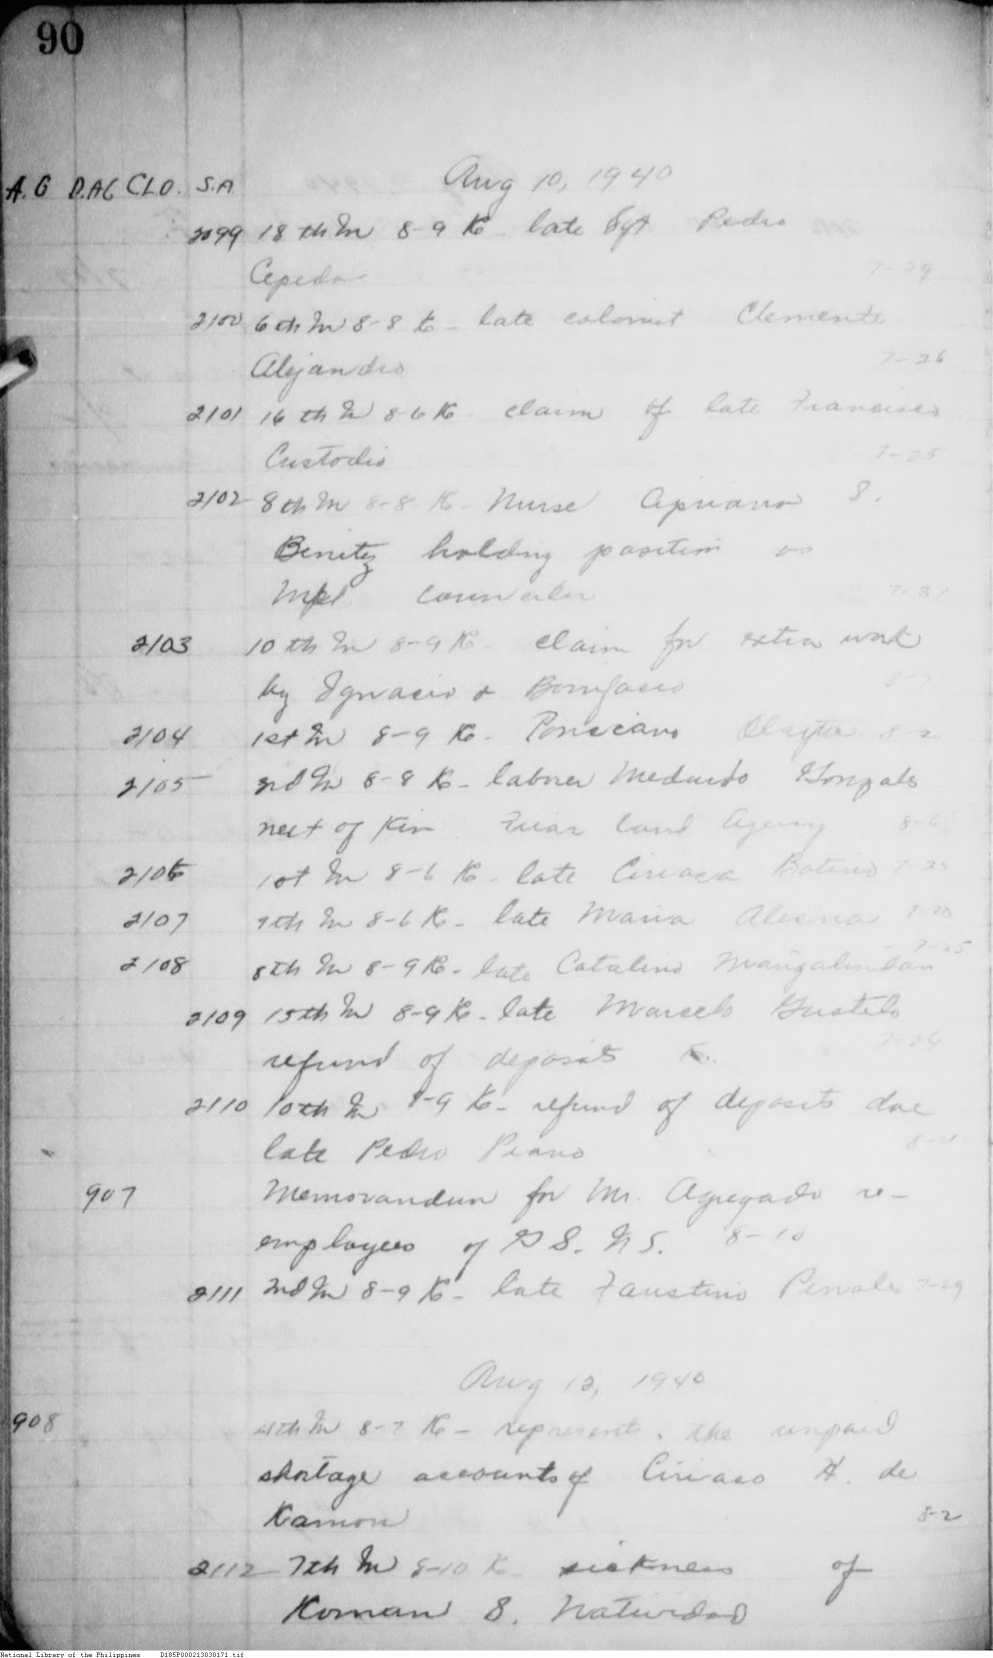 90
A.G D.AG CLO. S.A
Aug 10, 1940
2099 18th In 8-9 K - late Sgt Pedro
Cepeda 7-29
2100 6th In 8-8 K - late colonist Clemente
Alejandro 7-26
2101 16th In 8-6 K claim of late Francisco
Custodio 7-25
2102 8th In 8-8 K - Nurse Cipriano S.
Benitez holding position as
Mpl councilor 7-31
2103 10th In 8-9 K - claim for extra work
by Ignacio & Bonifacio
2104 1st In 8-9 K - Ponciano 8-2
2105 2nd In 8-8 K - laborer Medardo Gonzales
next of kin Friar land Agency 8-6
2106 1st In 8-6 K - late Ciriaca 7-25
2107 7th In 8-6 K - late Maria 7-20
2108 8th In 8-9 K - late Catalino Mangalindan 7-25
2109 15th In 8-9 K - late Marcelo
refund of deposits 7-26
2110 10th In 8-9 K - refund of deposits due
late Pedro Piano
907 Memorandum for Mr. Agregado re-
employees of P.S. N S. 8-10
2111 2nd In 8-9 K - late Faustino 7-29
Aug 12, 1940
908 4th In 8-7 K - represents. the unpaid
shortage accounts of Ciriaco H. de
Ramon 8-2
2112 7th In 8-10 K - sickness of
Roman S. Natividad
National Library of the Philippines D185P000213030171.tif